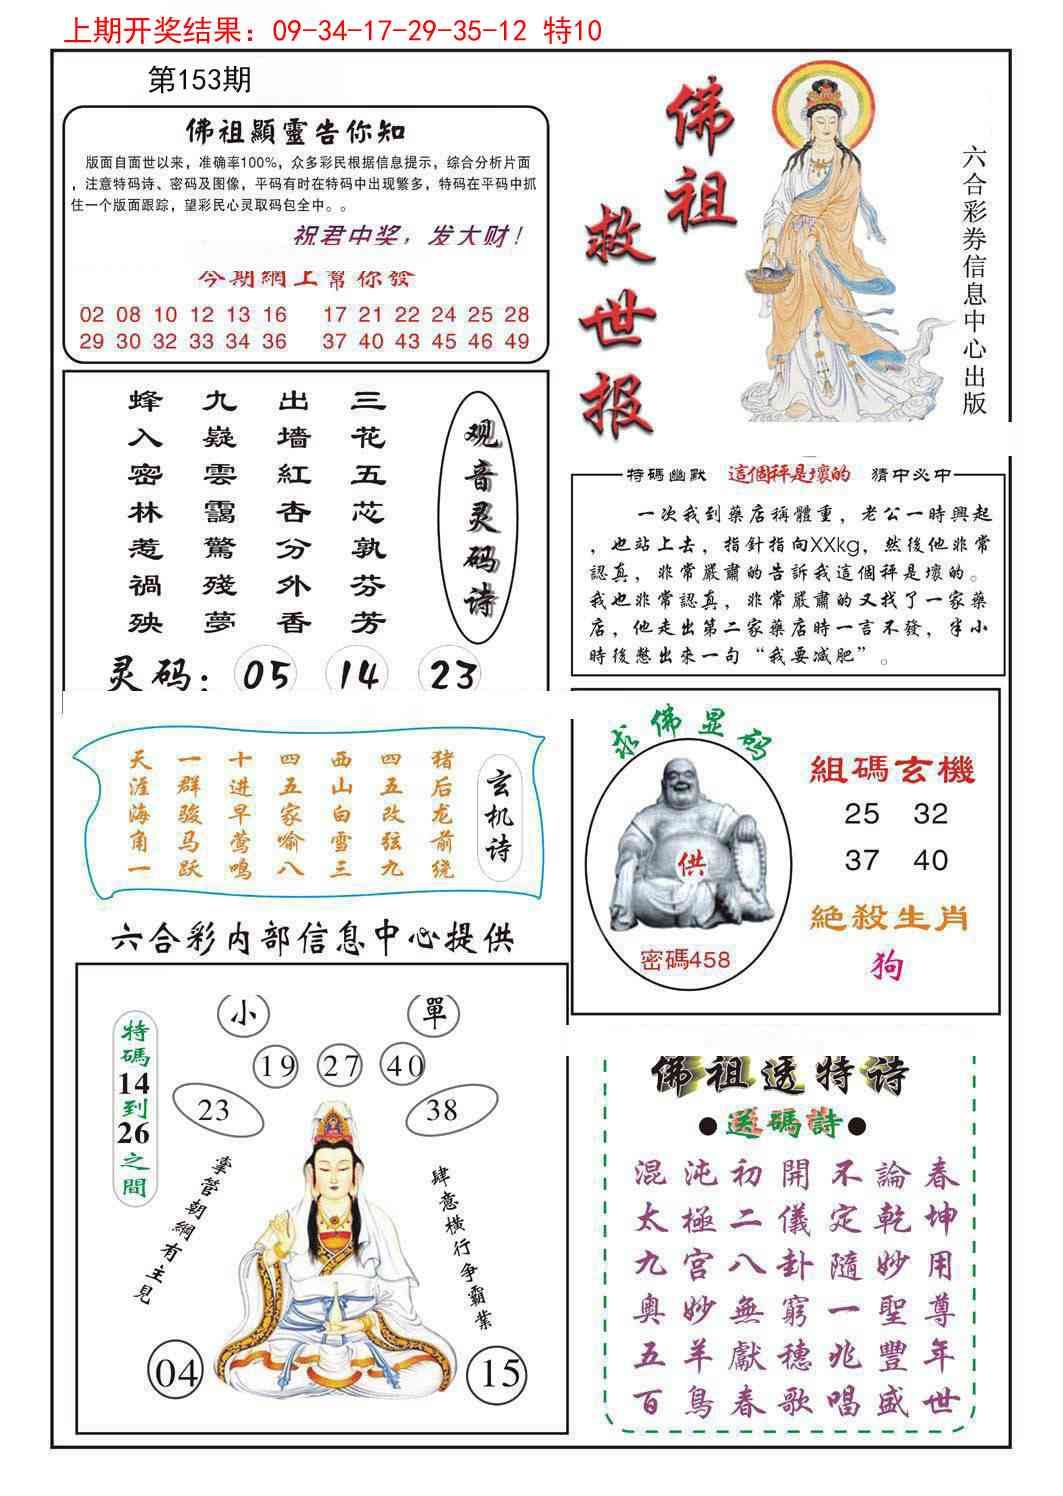 上期开奖结果：09-34-17-29-35-12 特10
第153期
佛祖顯靈告你知
版面自面世以来，准确率100%，众多彩民根据信息提示，综合分析片面
，注意特码诗、密码及图像，平码有时在特码中出现繁多，特码在平码中抓
住一个版面跟踪，望彩民心灵取码包全中。。
祝君中奖，发大财！
今期網上幫你發
02 08 10 12 13 16 17 21 22 24 25 28
29 30 32 33 34 36 37 40 43 45 46 49
佛祖
救世报
六合彩券信息中心出版
观音灵码诗
三花五芯孰芬芳
出墙紅杏分外香
九嶷雲靄驚殘夢
蜂入密林惹禍殃
灵码：05 14 23
特碼幽默 這個秤是壞的 猜中必中
一次我到藥店稱體重，老公一時興起
，也站上去，指針指向XXkg，然後他非常
認真，非常嚴肅的告訴我這個秤是壞的。
我也非常認真，非常嚴肅的又找了一家藥
店，他走出第二家藥店時一言不發，半小
時後憋出來一句“我要减肥”。
玄机诗
猪后龙前绕
四五改弦九
西山白雪三
四五家喻八
十进早莺鸣
一群骏马跃
天涯海角一
求佛显码
供
密碼458
組碼玄機
25 32
37 40
絶殺生肖
狗
六合彩内部信息中心提供
特碼14到26之間
小 單
19 27 40
23 38
掌管朝綱有主見
肆意橫行争霸業
04 15
佛祖透特诗
●送碼詩●
混沌初開不論春
太極二儀定乾坤
九宮八卦隨妙用
奥妙無窮一聖尊
五羊獻穗兆豐年
百鳥春歌唱盛世